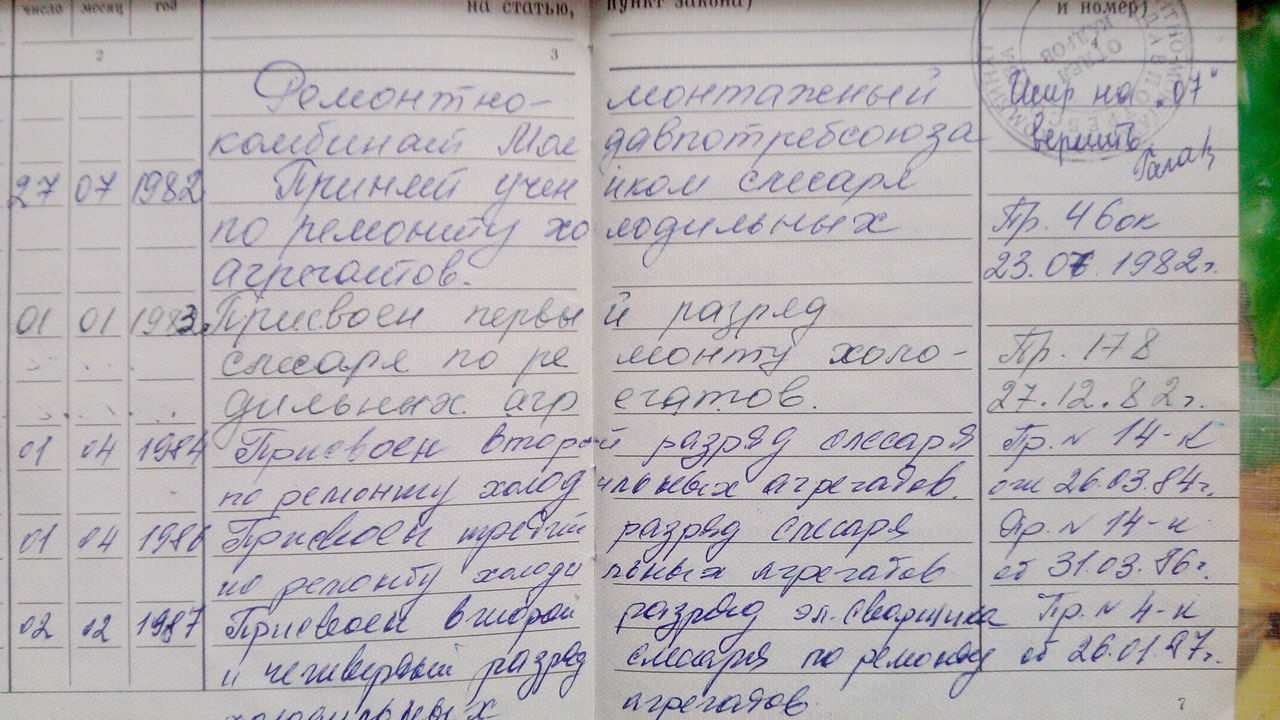 число месяц год на статью, пункт закона) и номер)
2 3 4
Ремонтно- монтажный
комбинат Молдавпотребсоюза
27 07 1982 Принят учеником слесаря
по ремонту холодильных Пр. 46ок
агрегатов. 23.07.1982г.
01 01 1983 Присвоен первый разряд
слесаря по ремонту холо- Пр. 178
дильных агрегатов. 27.12.82г.
01 04 1984 Присвоен второй разряд слесаря Пр. № 14-к
по ремонту холодильных агрегатов. от 26.03.84г.
01 04 1986 Присвоен третий разряд слесаря Пр. № 14-к
по ремонту холодильных агрегатов от 31.03.86г.
02 02 1987 Присвоен второй разряд эл. сварщика Пр. № 4-к
и четвертый разряд слесаря по ремонту от 26.01.87г.
холодильных агрегатов
на "07"
верить
ОТДЕЛ
КАДРОВ
7